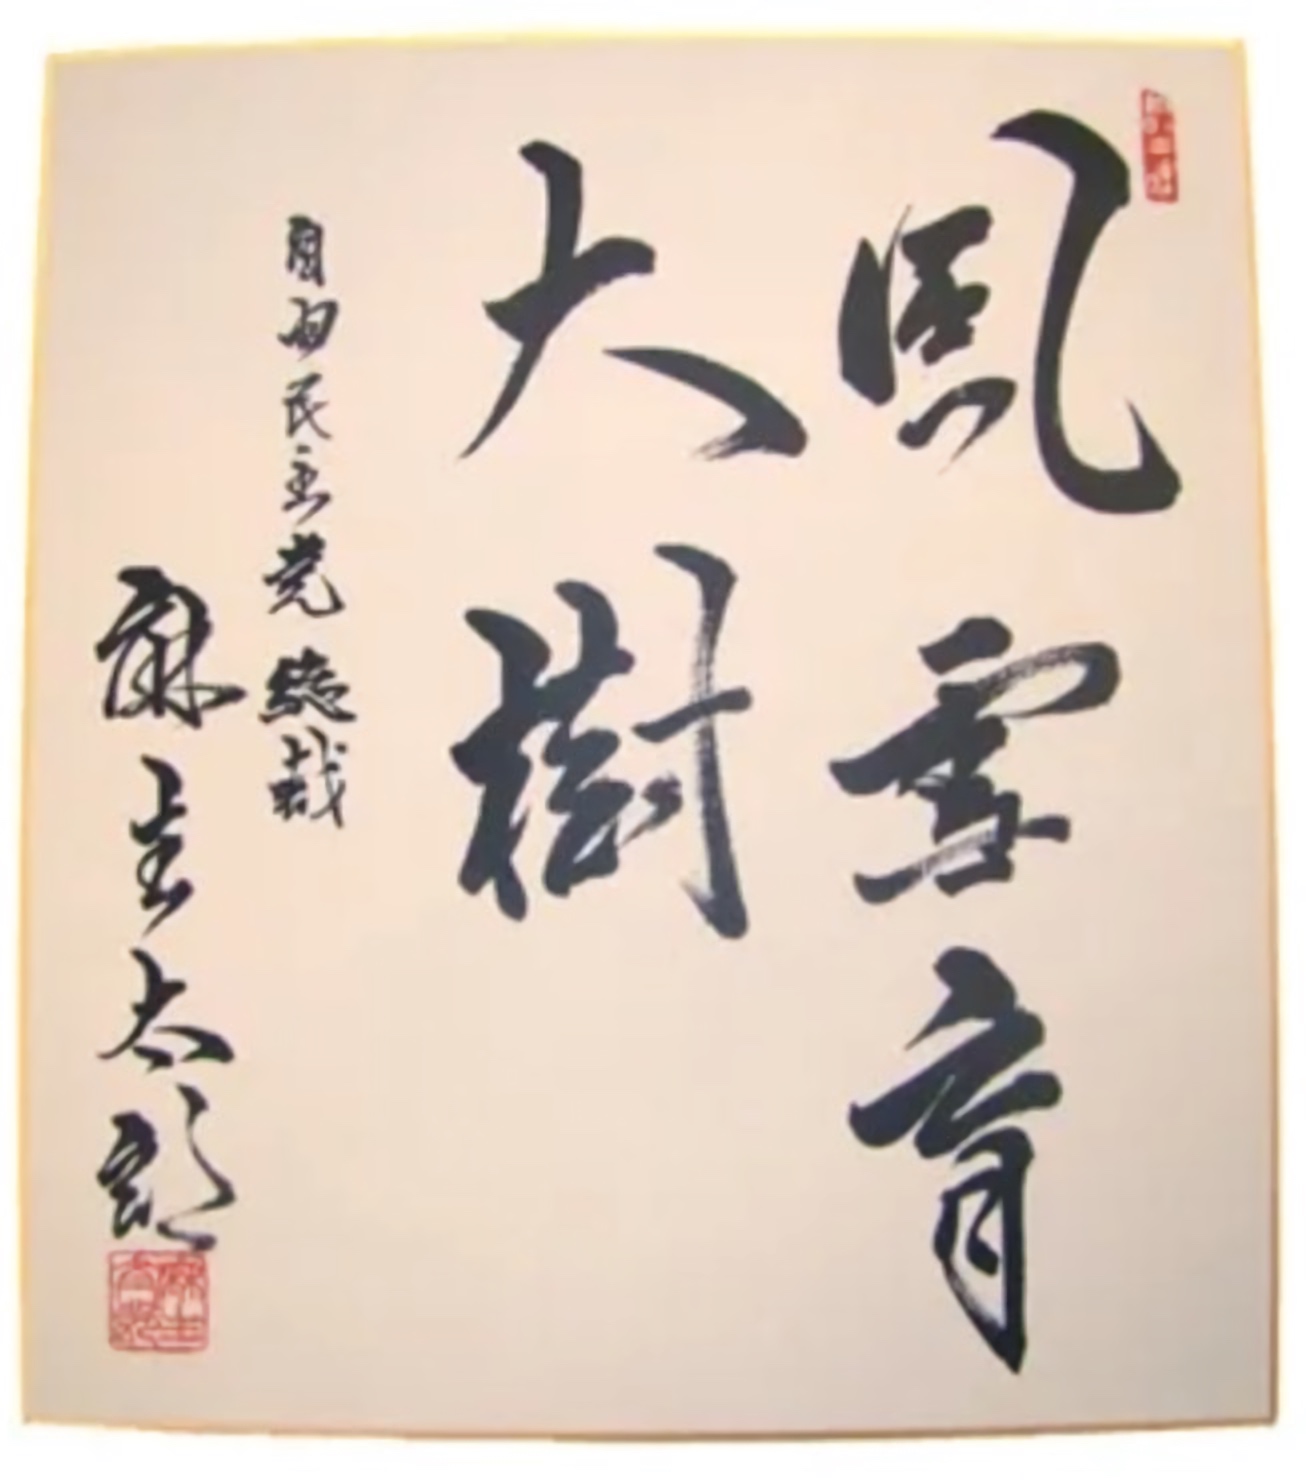 風雪育
大樹
自由民主党総裁
麻生太郎
麻生
太郎